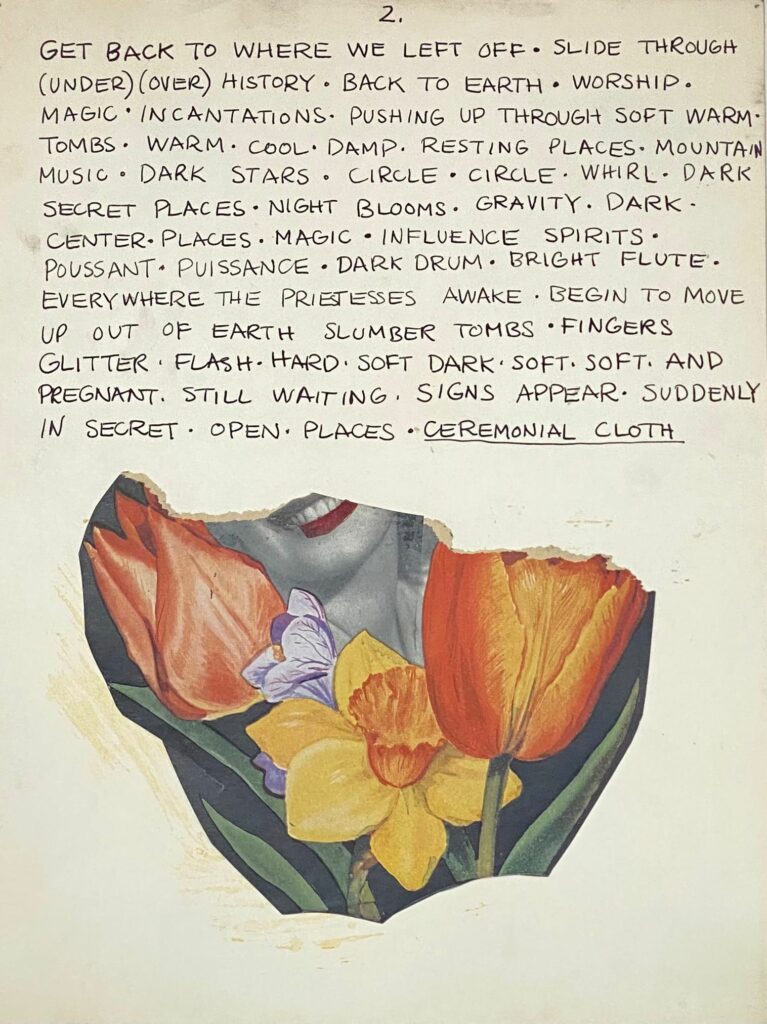 2.
GET BACK TO WHERE WE LEFT OFF · SLIDE THROUGH
(UNDER)(OVER) HISTORY · BACK TO EARTH · WORSHIP ·
MAGIC · INCANTATIONS · PUSHING UP THROUGH SOFT WARM ·
TOMBS · WARM · COOL · DAMP · RESTING PLACES · MOUNTAIN
MUSIC · DARK STARS · CIRCLE · CIRCLE · WHIRL · DARK
SECRET PLACES · NIGHT BLOOMS · GRAVITY · DARK ·
CENTER · PLACES · MAGIC · INFLUENCE SPIRITS ·
POUSSANT · PUISSANCE · DARK DRUM · BRIGHT FLUTE ·
EVERYWHERE THE PRIESTESSES AWAKE · BEGIN TO MOVE
UP OUT OF EARTH SLUMBER TOMBS · FINGERS
GLITTER · FLASH · HARD · SOFT DARK · SOFT · SOFT · AND
PREGNANT. STILL WAITING · SIGNS APPEAR · SUDDENLY
IN SECRET · OPEN · PLACES · CEREMONIAL CLOTH